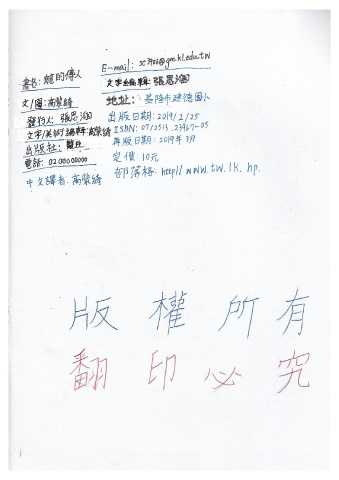 書名: 龍的傳人
E-mail: sc7906@gm.kl.edu.tw
文字編輯: 張恩滙
文/圖: 高紫綺
地址: 基隆市建德國小
發行人: 張恩滙
出版日期: 2019/2/25
文字/美術編輯: 高紫綺
ISBN: 07/2513.23967-05
出版社: 賢丘
再版日期: 2019年3月
電話: 02 00000000
定價: 10元
中文譯者: 高紫綺
部落格: http// www.tw.lk.hp.
版權所有
翻印必究